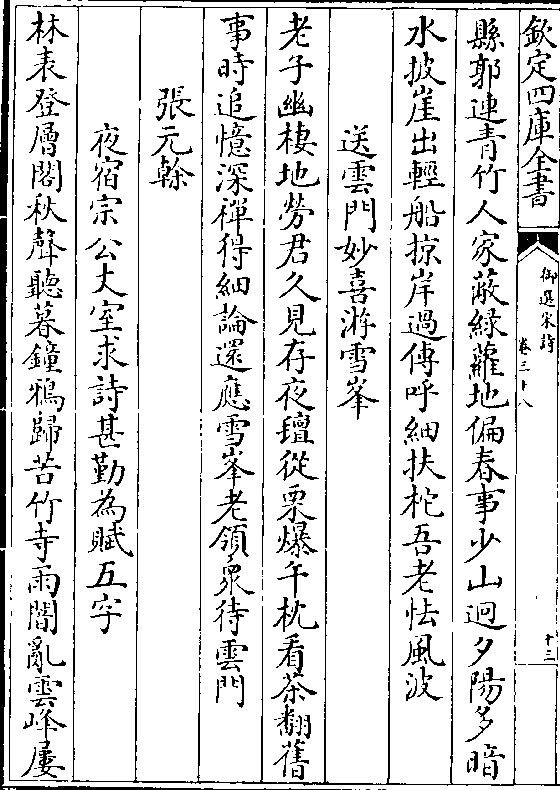 欽定四庫全書
御選宋詩
卷三十八
十三
縣郭連青竹人家蔽綠蘿地偏春事少山迥夕陽多暗
水披崖出輕船掠岸過傳呼細扶柁吾老怯風波
送雲門妙喜游雪峯
老子幽棲地勞君久見存夜壇從栗爆午枕看茶翻舊
事時追憶深禪得細論還應雪峯老領衆待雲門
張元幹
夜宿宗公丈室求詩甚勤為賦五字
林表登層閣秋聲聽暮鐘鴉歸苦竹寺雨闇亂雲峰屢